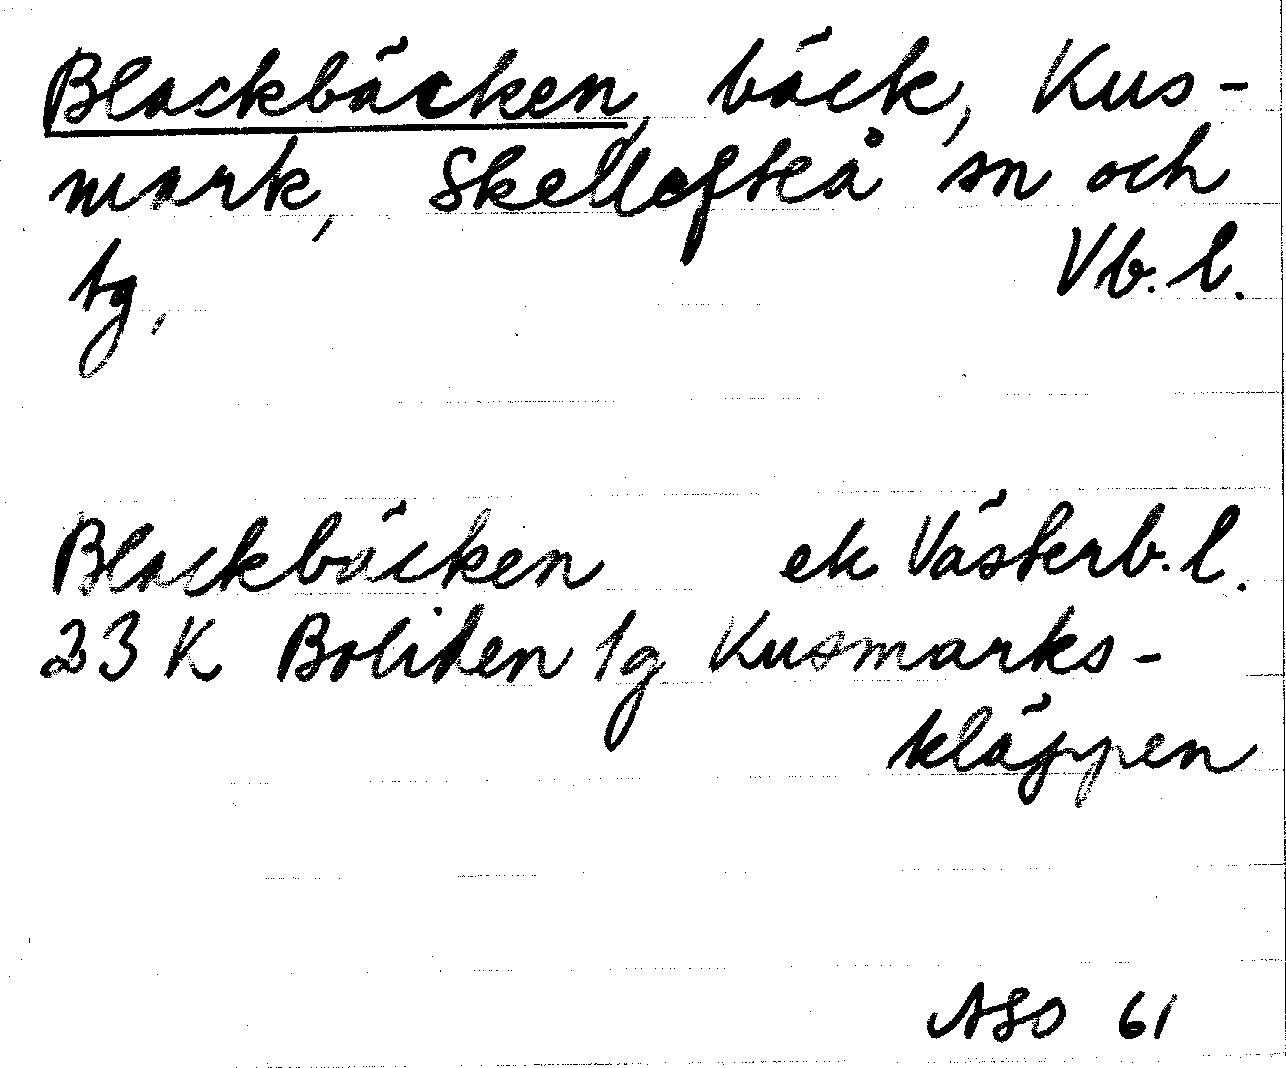 Blackbäcken, bäck, Kus-
mark, Skellefteå sn och
tg, Vb. l.
Blackbäcken ek Västerb. l.
23 K Boliden tg Kusmarks-
kläppen
ASO 61